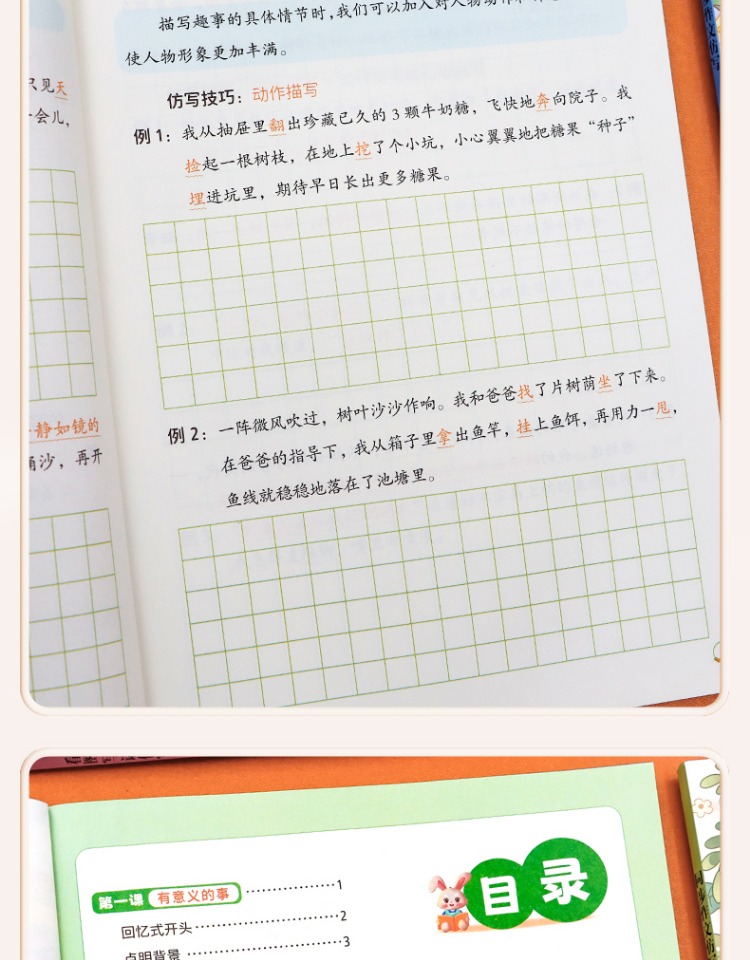 描写趣事的具体情节时，我们可以加入对人物动作
使人物形象更加丰满。
仿写技巧：动作描写
例1：我从抽屉里翻出珍藏已久的3颗牛奶糖，飞快地奔向院子。我
捡起一根树枝，在地上挖了个小坑，小心翼翼地把糖果“种子”
埋进坑里，期待早日长出更多糖果。
例2：一阵微风吹过，树叶沙沙作响。我和爸爸找了片树荫坐了下来。
在爸爸的指导下，我从箱子里拿出鱼竿，挂上鱼饵，再用力一甩，
鱼线就稳稳地落在了池塘里。
只见天
会儿，
静如镜的
沙，再开
目录
第一课 有意义的事 1
回忆式开头 2
点明背景 3